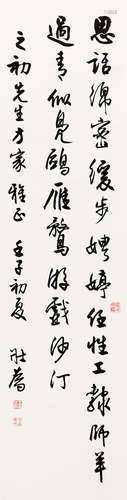 思話綿密緩步娉婷任性工隸師羊
過青似鳧鷗雁鶩游戲沙汀
之初先生方家雅正 壬子初夏 莊嚴